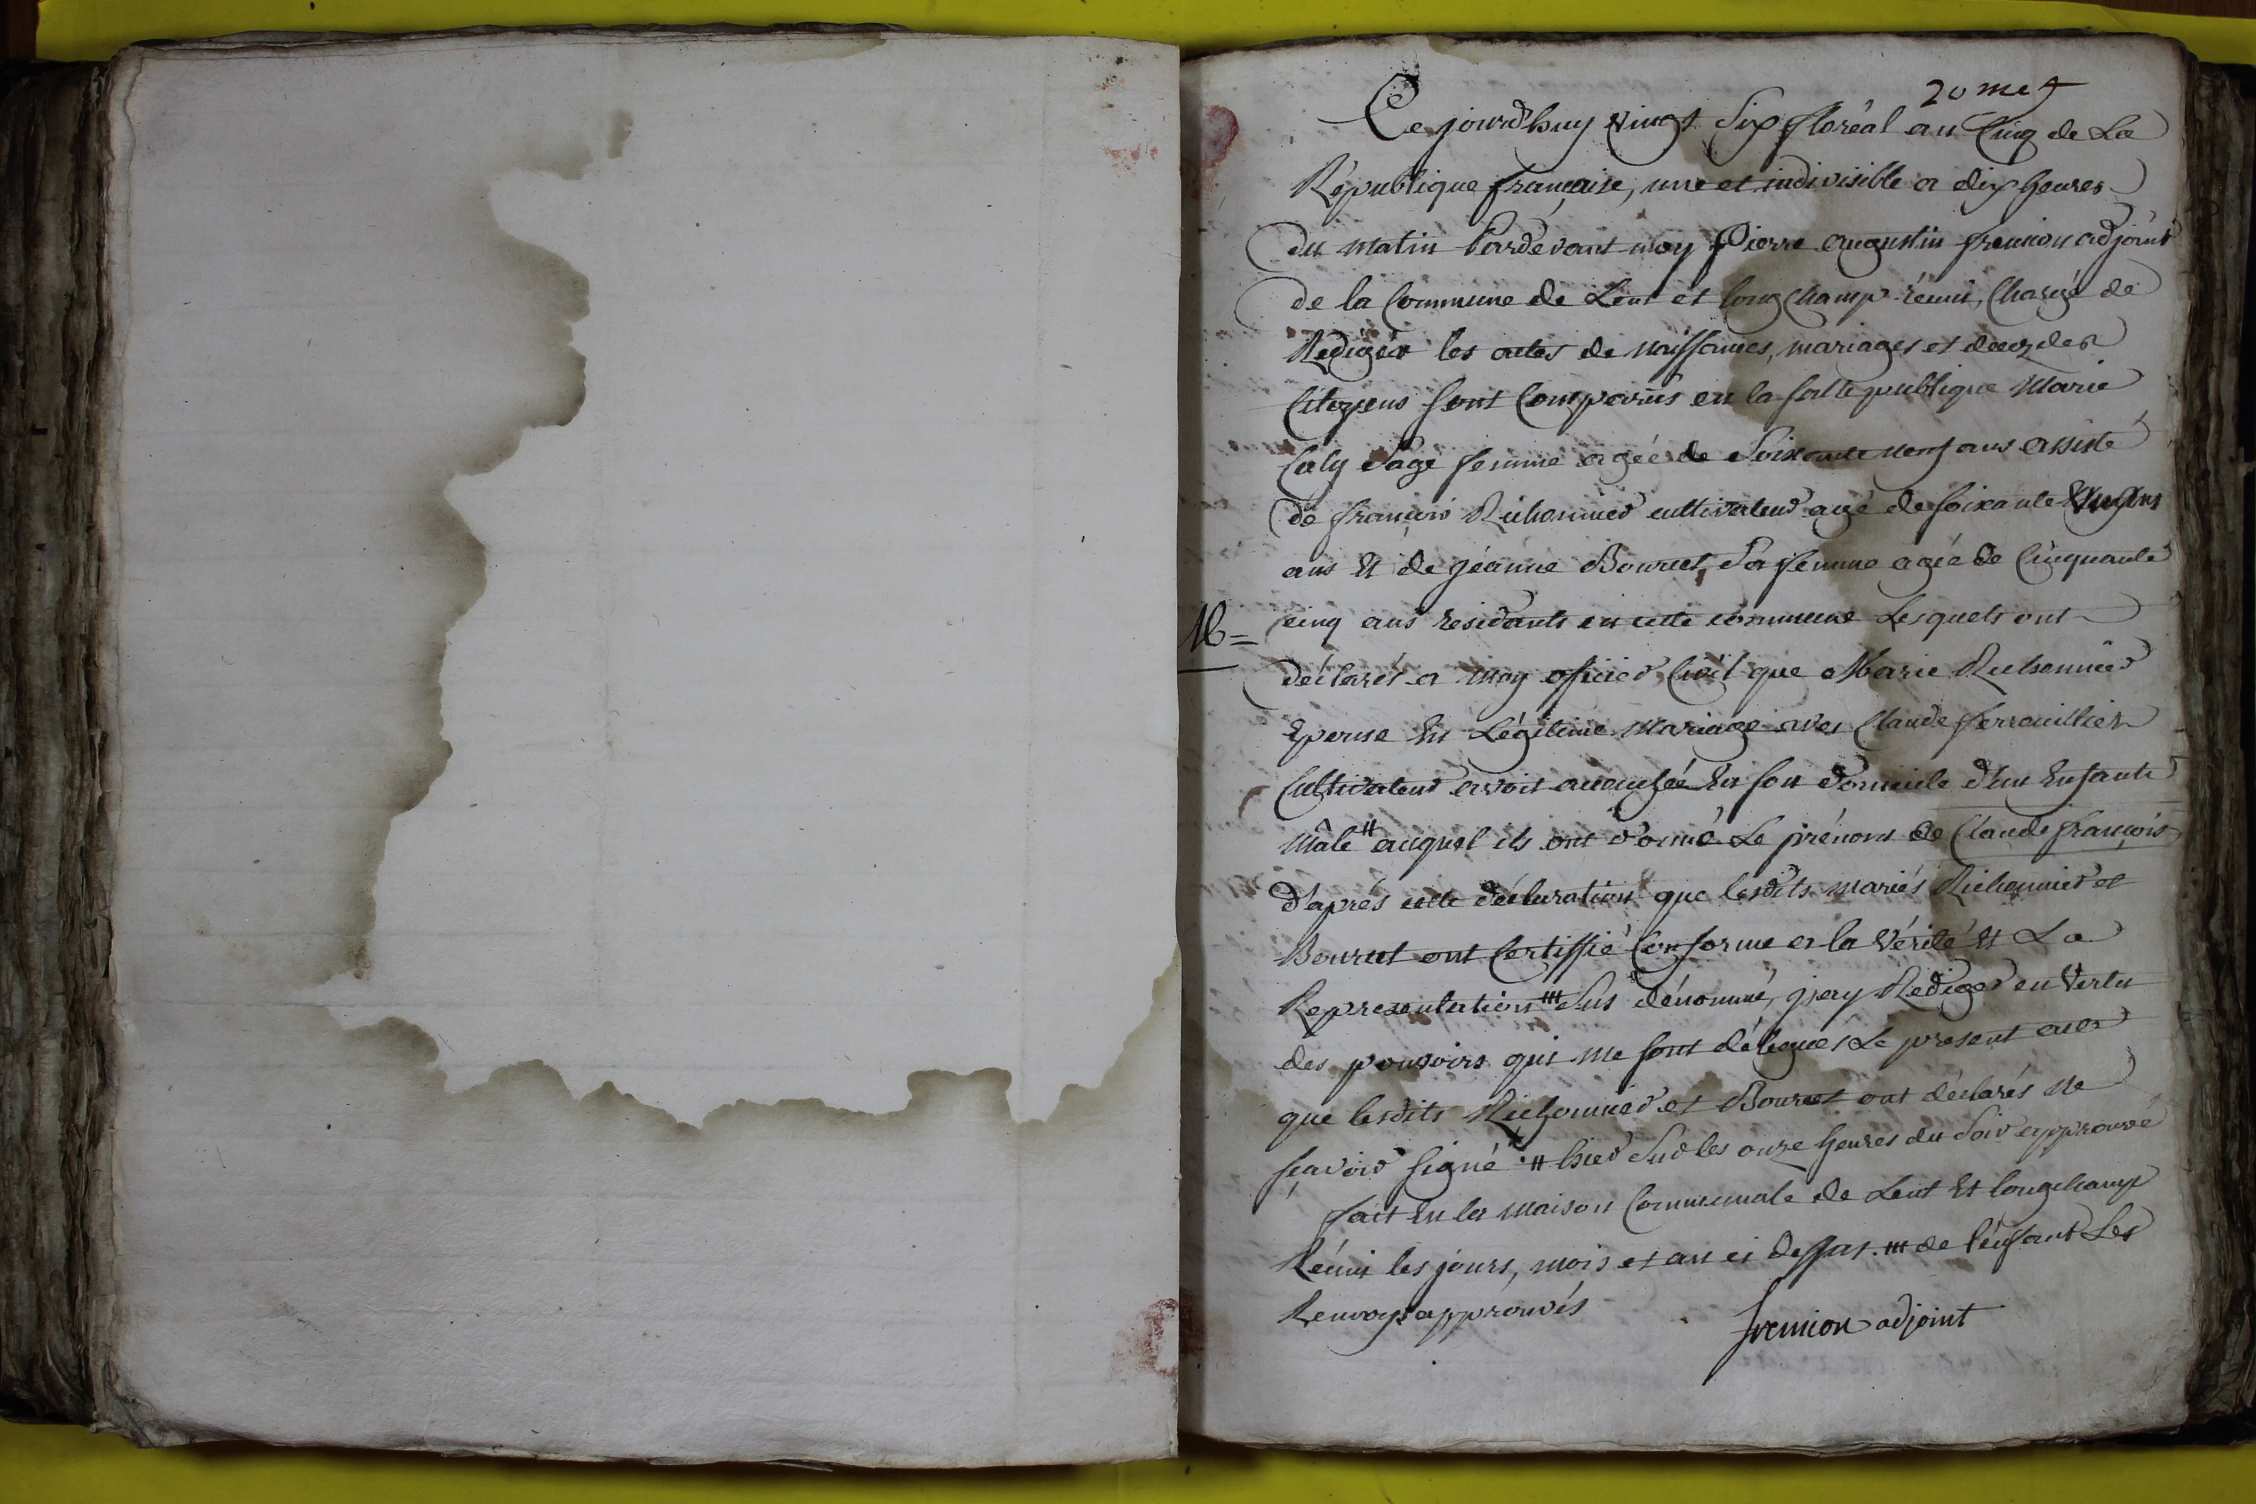 20 me
Cejourdhuy vingt Six floréal an Cinq de La
République française, une et indivisible a dix heures
du matin Pardevant moy Pierre augustin fremion adjoint
de la Commune de Lent et longchamp réuni, Chargé de
Rediger les actes de Naissances, mariages et decez des
Citoyens sont Comparus en la salle publique Marie
Caly Sage femme agée de Soixante neuf ans assisté
de françois Richonnier cultivateur agé de soixante
ans Et de jéanne Bourcet, Sa femme agée de Cinquante
cinq ans residants en cette commune Lesquels ont
déclarés a moy officier Civil que Marie Richonnier
Epouse En Légitime Mariage avec Claude ferrouillier
Cultivateur avoit accouchée En son domicile d'un Enfant
Mâle # auquel ils ont donné Le prénom de Claude françois
d'aprés cette déclaration que lesdits mariés Richonnier et
Bourcet ont Certiffié Conforme a la Vérité Et La
Representation Sus dénommé, j'ay Rediger en Vertu
des pouvoirs qui me sont délégués Le present acte
que lesdits Richonnier et Bourcet ont déclarés ne
sçavoir signé. # hier Sur les onze heures du Soir approuvé
fait En la maison Communale de Lent Et longchamp
Réuni les jours, mois et an ci dessus. de l'enfant Les
Renvoys approuvés
fremion adjoint